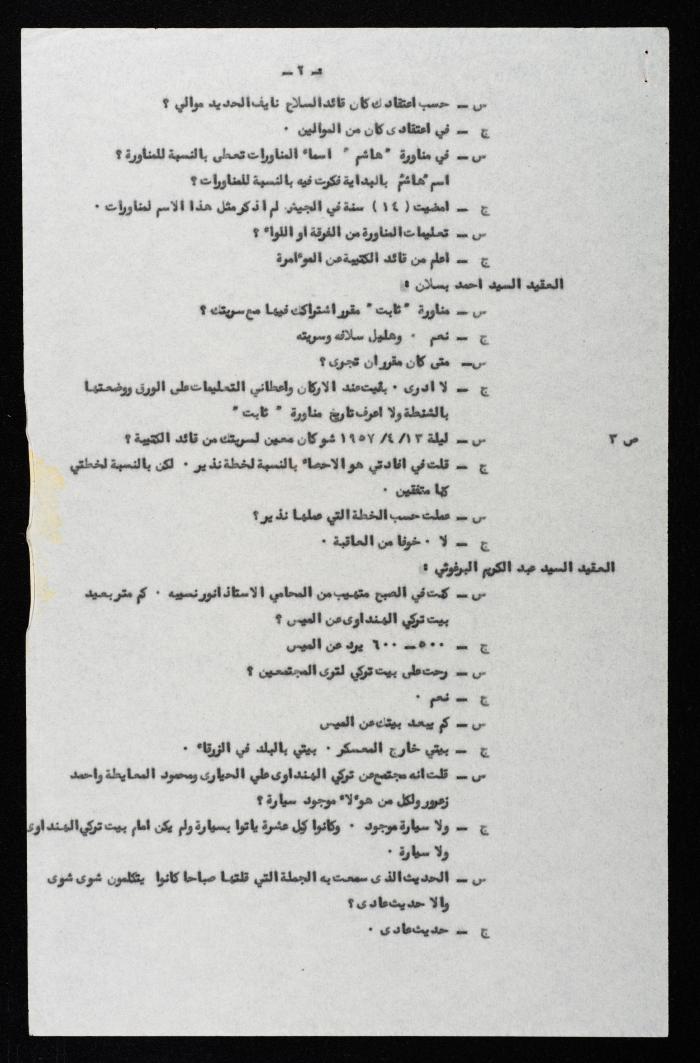 ـ ٢ ـ
س ـ حسب اعتقادك كان قائد السلاح نايف الحديد موالي ؟
ج ـ في اعتقادى كان من الموالين ٠
س ـ في مناورة " هاشم " اسماء المناورات تعطى بالنسبة للمناورة ؟
اسم "هاشم" بالبداية فكرت فيه بالنسبة للمناورات ؟
ج ـ امضيت ( ١٤ ) سنة في الجيش لم اذكر مثل هذا الاسم لمناورات ٠
س ـ تعليمات المناورة من الفرقة او اللواء ؟
ج ـ اعلم من قائد الكتيبة عن الموءامرة
العقيد السيد احمد بسلان :
س ـ مناورة " ثابت " مقرر اشتراكك فيها مع سريتك ؟
ج ـ نعم ٠ وهليل سلافه وسريته
س ـ متى كان مقرر ان تجرى ؟
ج ـ لا ادرى ٠ بقيت عند الاركان واعطاني التعليمات على الورق ووضعتها
بالشنطة ولا اعرف تاريخ مناورة " ثابت "
ص ٣ س ـ ليلة ١٣ /٤/ ١٩٥٧ شو كان معين لسريتك من قائد الكتيبة ؟
ج ـ قلت في افادتي هو الاحصاء بالنسبة لخطة نذير ٠ لكن بالنسبة لخطتي
كنا متفقين ٠
س ـ عملت حسب الخطة التي عملها نذير ؟
ج ـ لا ٠ خوفا من العاقبة ٠
العقيد السيد عبد الكريم البرغوثي :
س ـ كنت في الصبح متهيب من المحامي الاستاذ انور نسيبه ٠ كم متر بعيد
بيت تركي الهنداوى عن الميس ؟
ج ـ ٥٠٠ ـ ٦٠٠ يرد عن الميس
س ـ رحت على بيت تركي لترى المجتمعين ؟
ج ـ نعم ٠
س ـ كم يبعد بيتك عن الميس
ج ـ بيتي خارج المعسكر ٠ بيتي بالبلد في الزرقاء ٠
س ـ قلت انه مجتمع عن تركي الهنداوى علي الحيارى ومحمود المعايطة واحمد
زعرور ولكل من هوءلاء موجود سيارة ؟
ج ـ ولا سيارة موجود ٠ وكانوا كل عشرة ياتوا بسيارة ولم يكن امام بيت تركي الهنداوى
ولا سيارة ٠
س ـ الحديث الذى سمعت به الجملة التي قلتها صباحا كانوا يتكلمون شوى شوى
والا حديث عادى ؟
ج ـ حديث عادى ٠